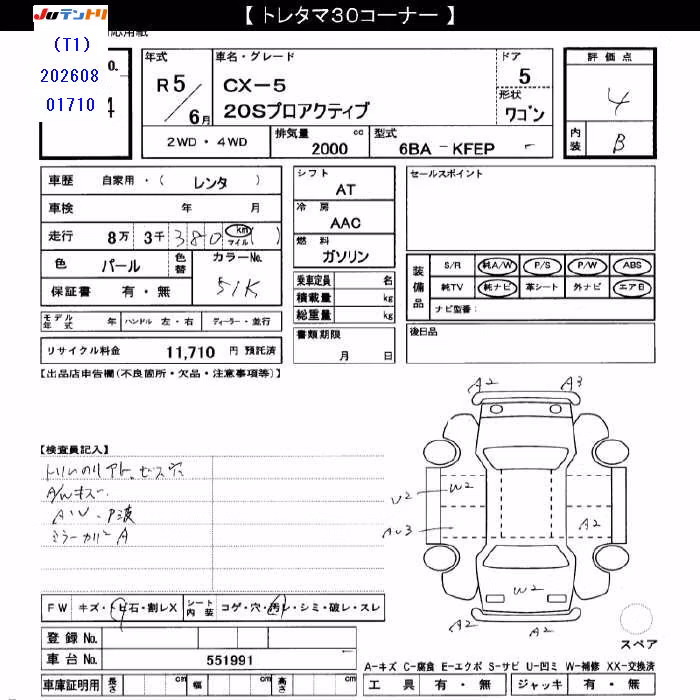 【 トレタマ30コーナー 】
JUテントリ
応用紙
(T1)
202608
01710
No.
4
年式
R 5 / 6 月
車名・グレード
CX-5
20Sプロアクティブ
ドア
5
形状
ワゴン
評価点
4
内装
B
2WD・4WD
排気量 cc
2000
型式
6BA - KFEP -
車歴 自家用・( レンタ )
車検 年 月
走行 8万 3千 380 km マイル ( )
色 パール 色替 カラーNo. 51K
保証書 有・無
モデル年式 年 ハンドル 左・右 ディーラー・並行
リサイクル料金 11,710 円 預託済
シフト
AT
冷房
AAC
燃料
ガソリン
乗車定員 名
積載量 kg
総重量 kg
書類期限
月 日
セールスポイント
装備品
S/R 純A/W P/S P/W ABS
純TV 純ナビ 革シート 外ナビ エアB
ナビ型番:
後日品
【出品店申告欄(不良箇所・欠品・注意事項等)】
【検査員記入】
A/Wキズ
ミラーカバーA
A2 A3
U2 W2
A2
W2
A2 A2
スペア
FW キズ・トビ石・割レX シート内装 コゲ・穴・汚レ・シミ・破レ・スレ
登録No.
車台No. 551991
車庫証明用 長さ cm 幅 cm 高さ cm
A-キズ C-腐食 E-エクボ S-サビ U-凹ミ W-補修 XX-交換済
工具 有・無 ジャッキ 有・無